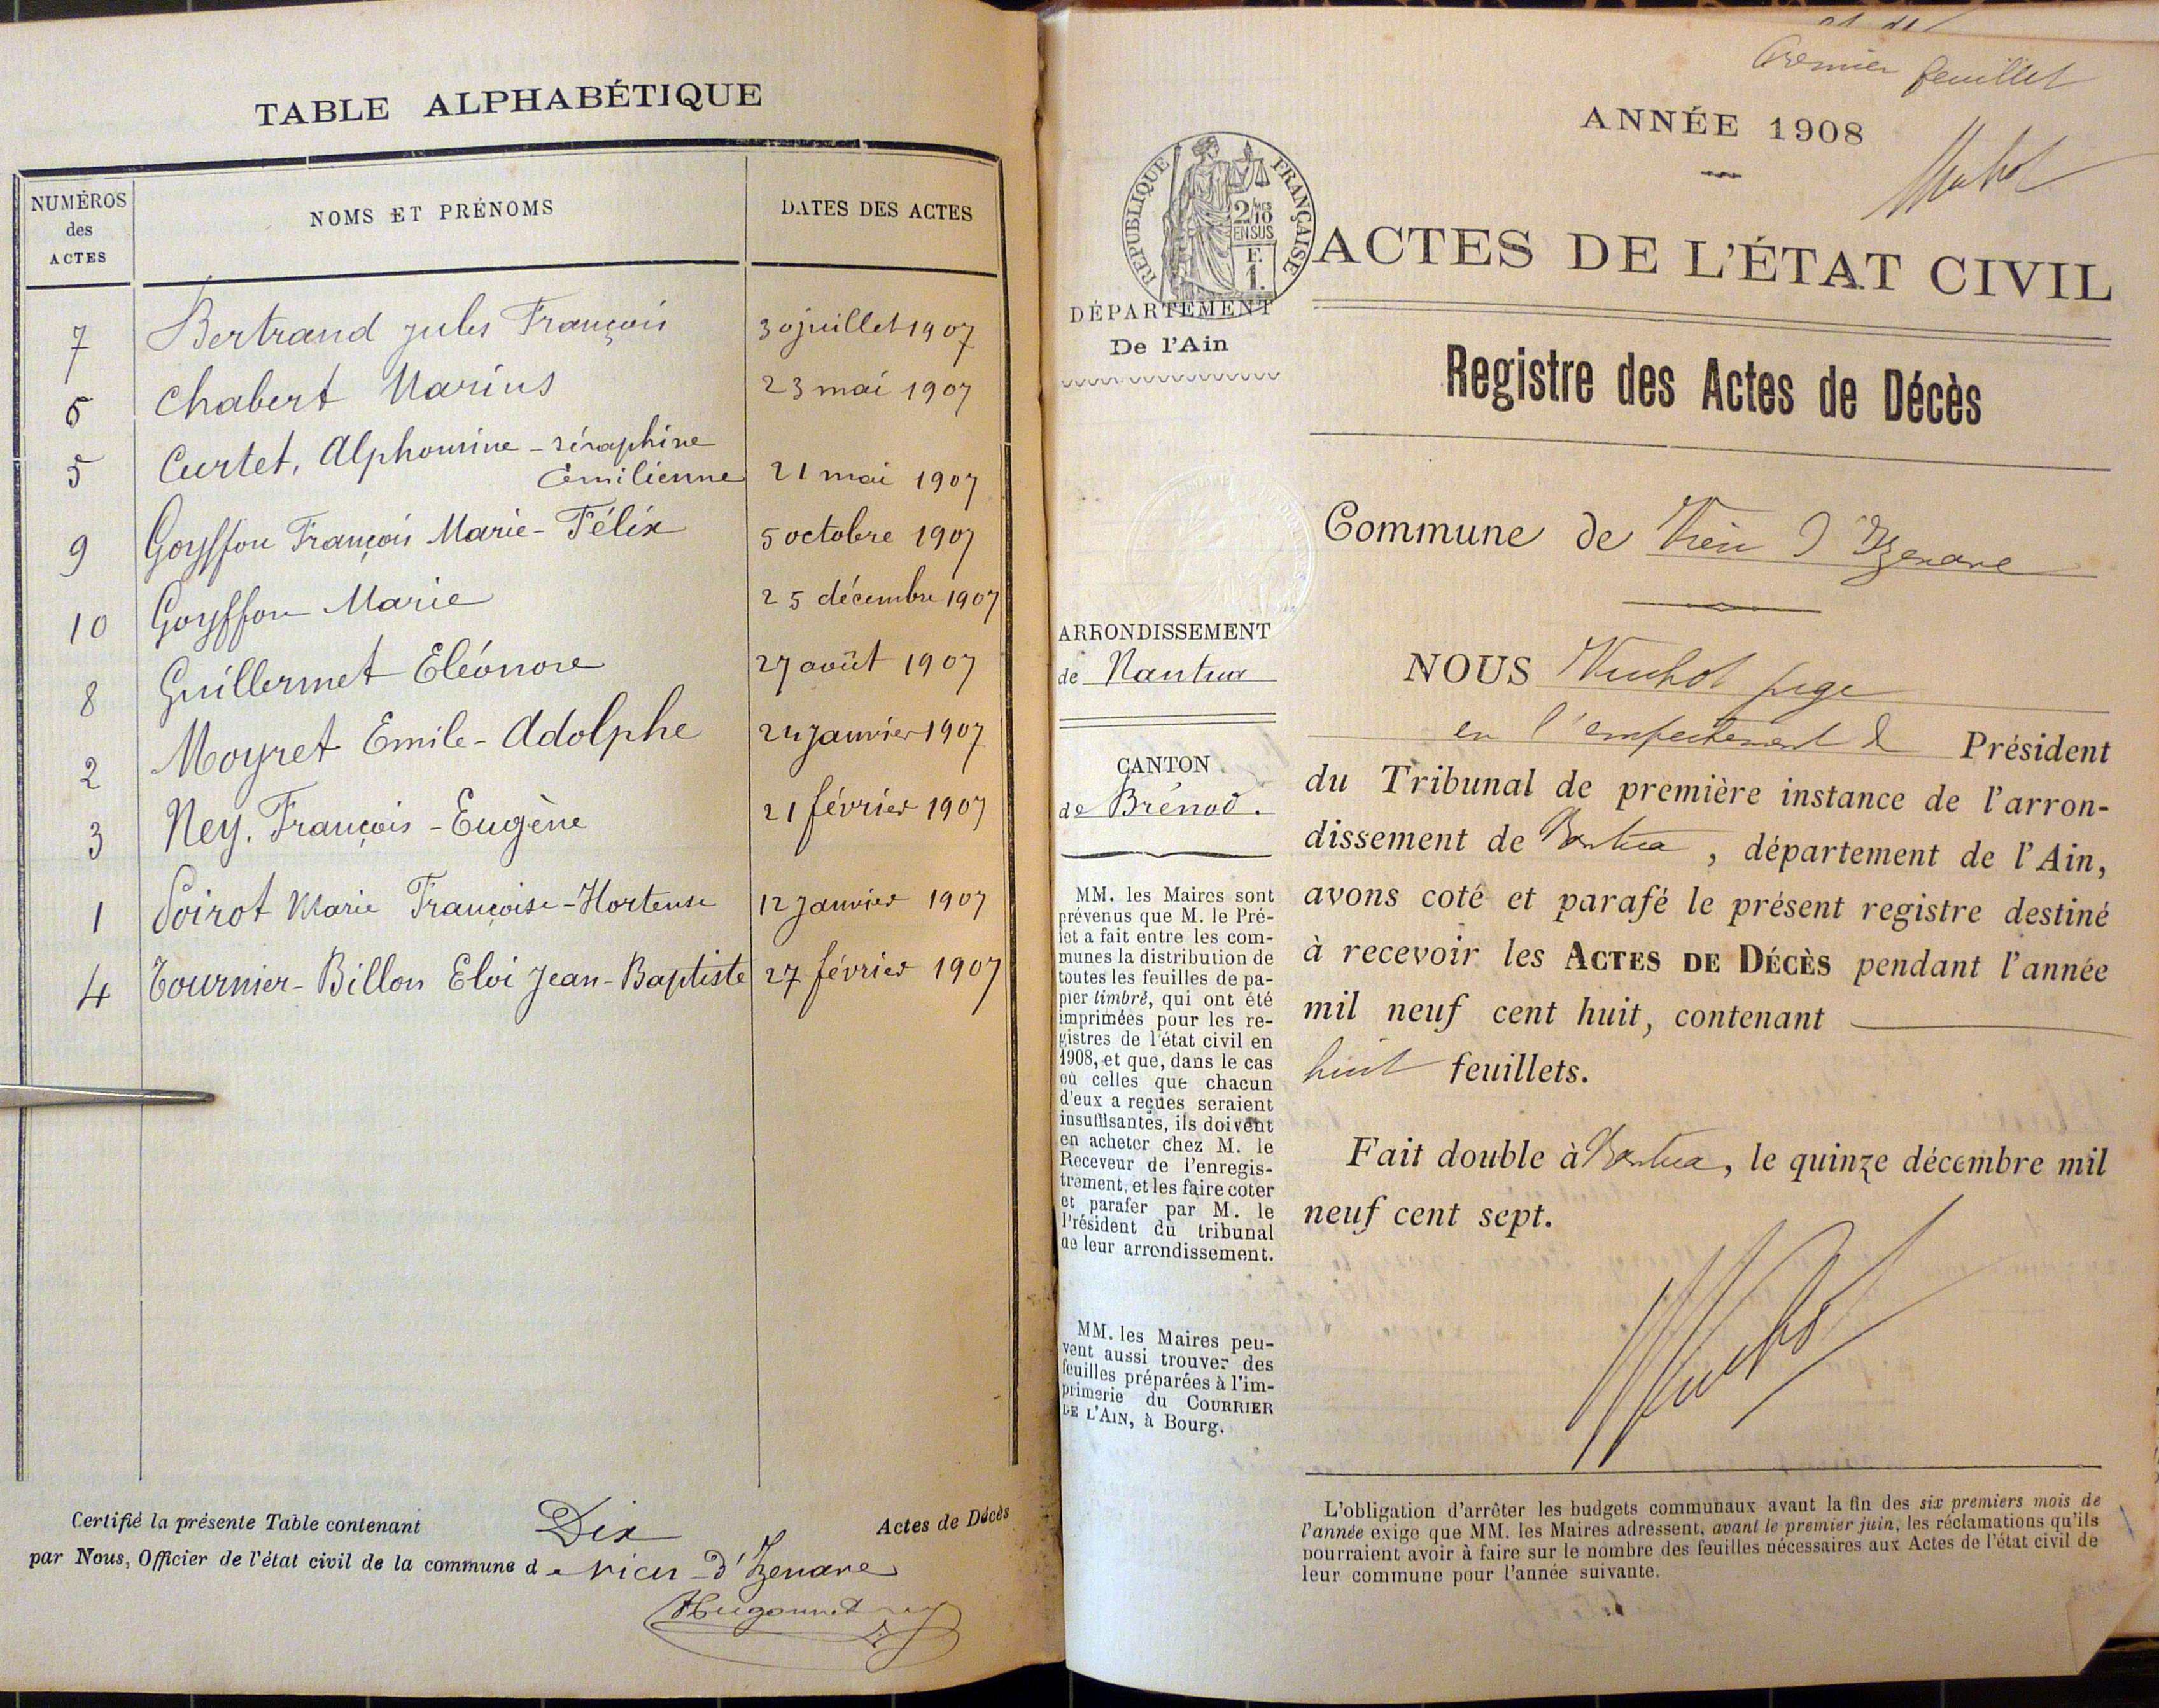 TABLE ALPHABÉTIQUE
NUMÉROS des ACTES
NOMS ET PRÉNOMS
DATES DES ACTES
7 Bertrand Jules François 30 juillet 1907
6 Chabert Marius 23 mai 1907
5 Curtet, Alphonsine - Séraphine
Emilienne 21 mai 1907
9 Goyffon François Marie - Félix 5 octobre 1907
10 Goyffon Marie 25 décembre 1907
8 Guillermet Eléonore 27 août 1907
2 Moyret Emile - Adolphe 24 Janvier 1907
3 Ney. François - Eugène 21 février 1907
1 Poirot Marie Françoise - Hortense 12 Janvier 1907
4 Tournier - Billon Eloi Jean - Baptiste 27 février 1907
Certifié la présente Table contenant Dix Actes de Décès
par Nous, Officier de l'état civil de la commune de vieu - d'Izenave
Hugonnet
Premier feuillet
ANNÉE 1908
RÉPUBLIQUE FRANÇAISE
2/10MES
EN SUS
F.
1.
ACTES DE L'ÉTAT CIVIL
DÉPARTEMENT
De l'Ain
Registre des Actes de Décès
Commune de Vieu d'Izenave
ARRONDISSEMENT
de Nantua
CANTON
de Brénod.
MM. les Maires sont
prévenus que M. le Pré-
fet a fait entre les com-
munes la distribution de
toutes les feuilles de pa-
pier timbré, qui ont été
imprimées pour les re-
gistres de l'état civil en
1908, et que, dans le cas
où celles que chacun
d'eux a reçues seraient
insuffisantes, ils doivent
en acheter chez M. le
Receveur de l'enregis-
trement, et les faire coter
et parafer par M. le
Président du tribunal
de leur arrondissement.
MM. les Maires peu-
vent aussi trouver des
feuilles préparées à l'im-
primerie du COURRIER
DE L'AIN, à Bourg.
NOUS juge
en l'empêchement du Président
du Tribunal de première instance de l'arron-
dissement de Nantua, département de l'Ain,
avons coté et parafé le présent registre destiné
à recevoir les ACTES DE DÉCÈS pendant l'année
mil neuf cent huit, contenant
huit feuillets.
Fait double à Nantua, le quinze décembre mil
neuf cent sept.
L'obligation d'arrêter les budgets communaux avant la fin des six premiers mois de
l'année exige que MM. les Maires adressent, avant le premier juin, les réclamations qu'ils
pourraient avoir à faire sur le nombre des feuilles nécessaires aux Actes de l'état civil de
leur commune pour l'année suivante.